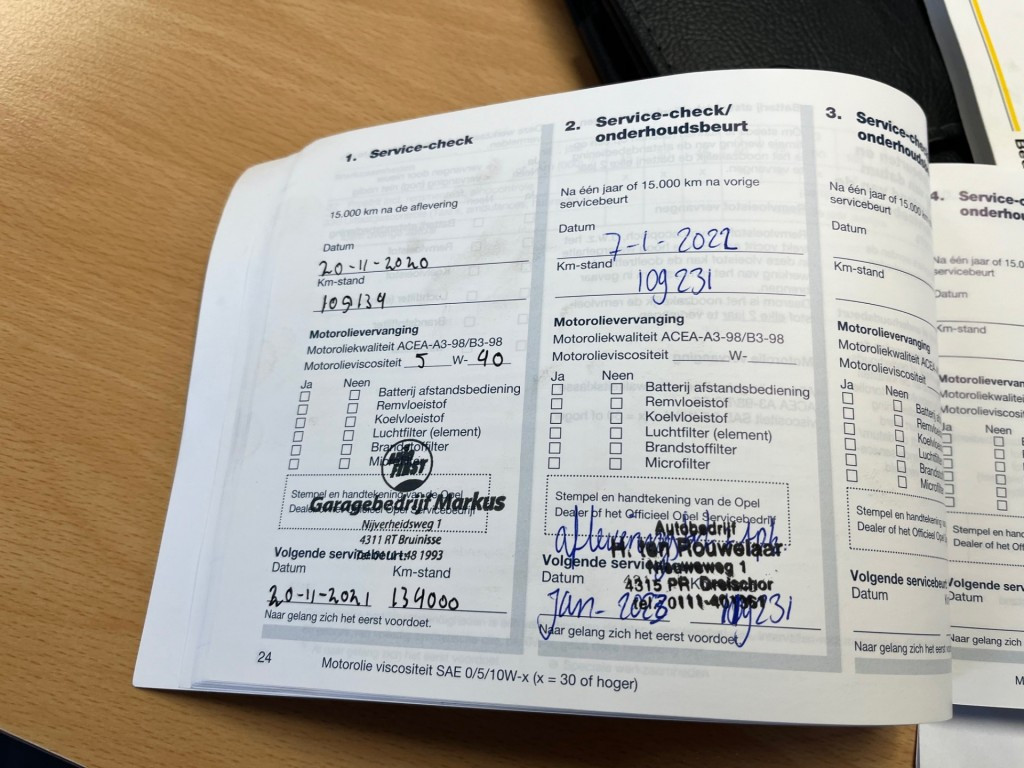 1. Service-check
15.000 km na de aflevering
Datum
20-11-2020
Km-stand
109134
Motorolievervanging
Motoroliekwaliteit ACEA-A3-98/B3-98
Motorolieviscositeit 5 W- 40
Ja Neen
Batterij afstandsbediening
Remvloeistof
Koelvloeistof
Luchtfilter (element)
Brandstoffilter
FIRST
Stempel en handtekening van de Opel
Garagebedrijf Markus
Dealer of het Officieel Opel Servicebedrijf
Nijverheidsweg 1
4311 RT Bruinisse
Volgende servicebeurt:
48 1993
Datum Km-stand
20-11-2021 134000
Naar gelang zich het eerst voordoet.
2. Service-check/
onderhoudsbeurt
Na één jaar of 15.000 km na vorige
servicebeurt
Datum
7-1-2022
Km-stand
109231
Motorolievervanging
Motoroliekwaliteit ACEA-A3-98/B3-98
Motorolieviscositeit W-
Ja Neen
Batterij afstandsbediening
Remvloeistof
Koelvloeistof
Luchtfilter (element)
Brandstoffilter
Microfilter
Stempel en handtekening van de Opel
Dealer of het Officieel Opel Servicebedrijf
Autobedrijf
H. ten Rouwelaar
Nieuweweg 1
Volgende
4315 PR Dreischor
Datum
Jan- 2023 109231
Naar gelang zich het eerst voordoet.
3. Service-
onderhouds
Na één jaar of 15.000
servicebeurt
Datum
Km-stand
Motorolievervanging
Motoroliekwaliteit ACEA
Motorolieviscositeit
Ja Neen
Stempel en handtekening
Dealer of het Officieel Opel
Volgende servicebeurt
Datum
Naar gelang zich het eerst
4. Service-
onderho
Na één jaar of 15.0
servicebeurt
Datum
Km-stand
Motorolievervan
Motoroliekwaliteit
Motorolieviscosit
Ja Neen
Stempel en hand
Dealer of het Offi
Volgende service
Datum
Naar gelang zich
24
Motorolie viscositeit SAE 0/5/10W-x (x = 30 of hoger)